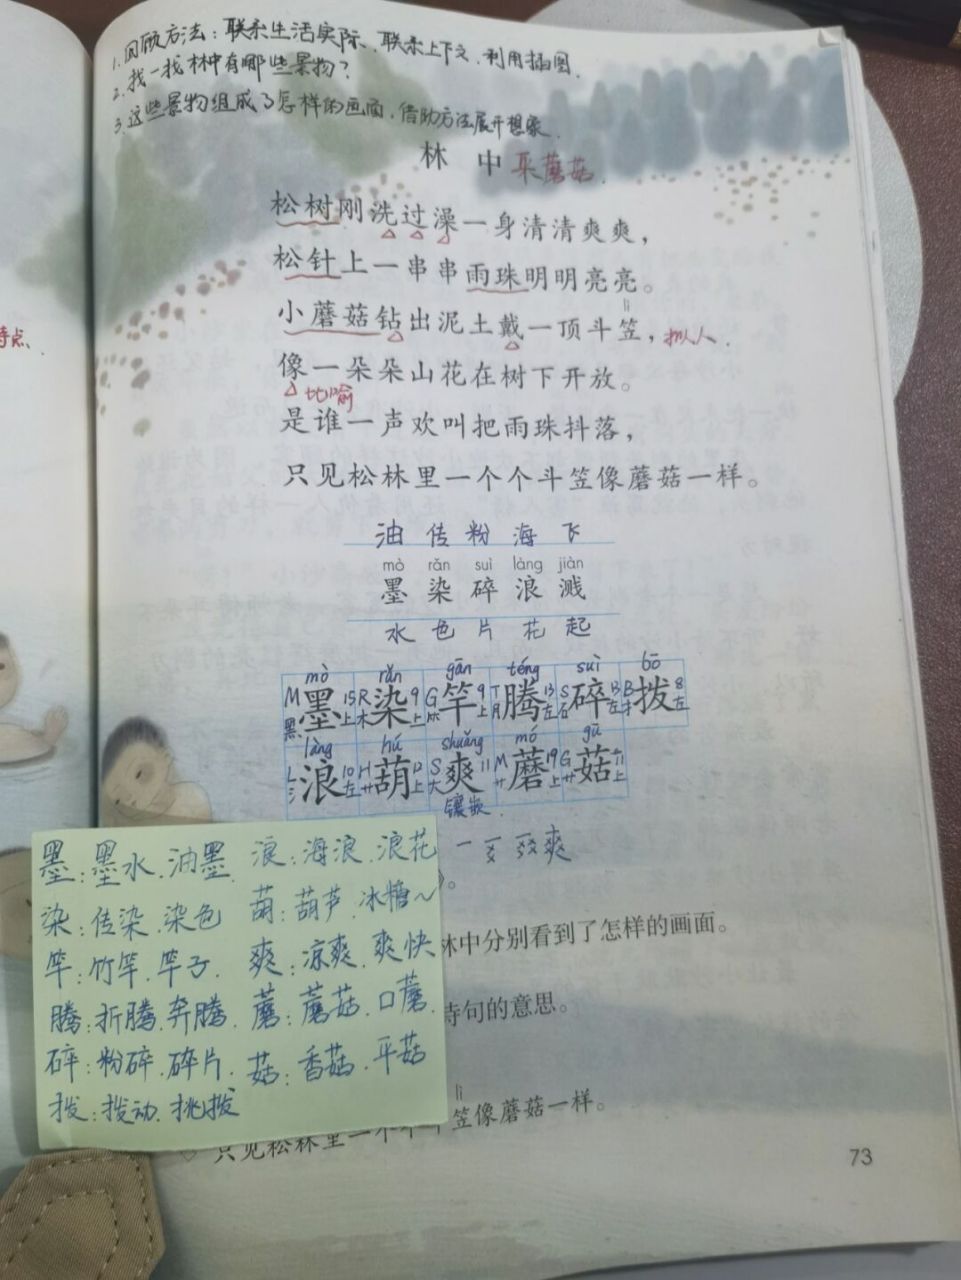 1.回顾方法：联系生活实际、联系上下文、利用插图.
2.找一找林中有哪些景物？
3.这些景物组成了怎样的画面，借助方法展开想象.
林 中 采蘑菇.
松树刚洗过澡一身清清爽爽，
松针上一串串雨珠明明亮亮。
lì
小蘑菇钻出泥土戴一顶斗笠，拟人.
特点.
像一朵朵山花在树下开放。
比喻
是谁一声欢叫把雨珠抖落，
只见松林里一个个斗笠像蘑菇一样。
油 传 粉 海 飞
mò rǎn suì làng jiàn
墨 染 碎 浪 溅
水 色 片 花 起
mò rǎn gān téng suì bō
M墨15上黑 R染9上木 G竿9上⺮ T腾13左月 S碎13左石 B拨8左扌
làng hú shuǎng mó gū
L浪10左氵 H葫12上艹 S爽11大 M蘑19上艹 G菇11上艹
镶嵌
爽
墨：墨水.油墨. 浪：海浪.浪花
染：传染.染色 葫：葫芦.冰糖～
竿：竹竿.竿子. 爽：凉爽.爽快
腾：折腾.奔腾. 蘑：蘑菇.口蘑.
碎：粉碎.碎片. 菇：香菇.平菇
拨：拨动.挑拨
。
林中分别看到了怎样的画面。
诗句的意思。
lì
◇ 只见松林里一个个斗笠像蘑菇一样。
73